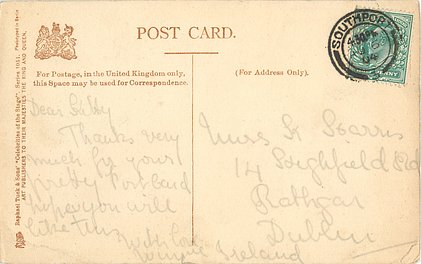 POST CARD.
For Postage, in the United Kingdom only,
this Space may be used for Correspondence.
(For Address Only).
Raphael Tuck & Sons' "Celebrities of the Stage" Series
ART PUBLISHERS TO THEIR MAJESTIES THE KING AND QUEEN.
SOUTHPORT
PENNY
Dear
Thanks very
much for your
pretty Postcard
hope you will
like this
with love
Miss
14 Rd
Rathgar
Dublin
Ireland